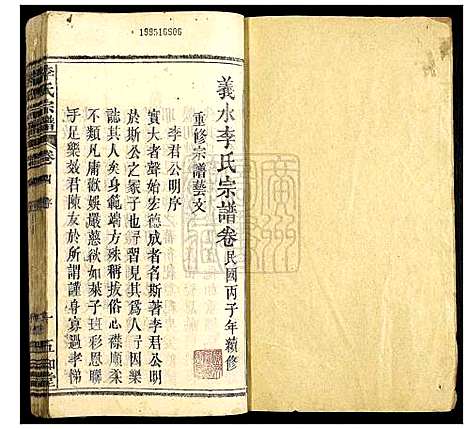 199516606
義水李氏宗譜卷 民國丙子年續修
重修宗譜藝文
李君公明序
實大者聲始宏德成者名斯著李君公明
於斯公之冢子也予習見其為人孝友因
誌其人矣身範端方殊稱拔俗心襟廉柔
不類凡庸歡娛嚴慈欲如萊子班彩恩聯
手足樂效君陳友於所謂謹身寡過孝悌
李氏宗譜 卷